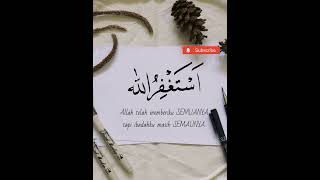 Subscribe
اَسْتَغْفِرُاللّٰه
Allah telah memberiku SEMUANYA,
tapi ibadahku masih SEMAUNYA.